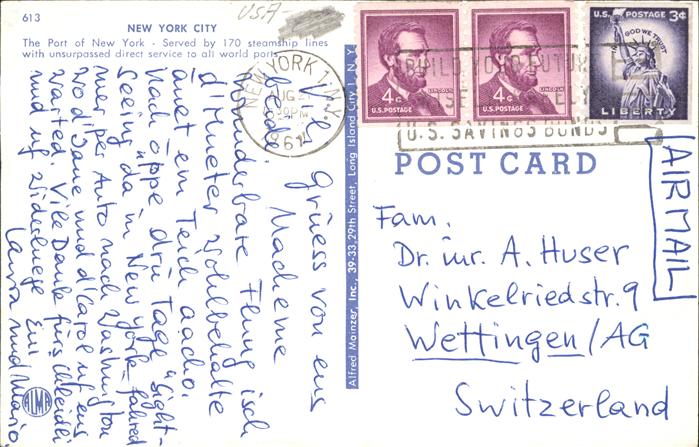 613
NEW YORK CITY
The Port of New York - Served by 170 steamship lines
with unsurpassed direct service to all world ports
USA-
NEW YORK 1, N.Y.
AUG
PM
1961
BUILD YOUR FUTURE
U.S. SAVINGS BONDS
4¢
LINCOLN
U.S. POSTAGE
4¢
LINCOLN
U.S. POSTAGE
U.S. POSTAGE 3¢
IN GOD WE TRUST
LIBERTY
POST CARD
AIRMAIL
Fam.
Dr. iur. A. Huser
Winkelriedstr. 9
Wettingen/AG
Switzerland
Alfred Mainzer, Inc., 39-33, 29th Street, Long Island City 1, N.Y.
Viel Grüess von eus
beede. Nacheme
wunderbare Flug isch
d'Mueter wohlbehalte
änet em Teich aacho.
Nach öppe drü Tage "Sight-
seeing" da in New York fahred
mer per Auto nach Washington
wo d'Jane und d'Carol uf eus
warted. Vile Dank fürs
und uf Widerluege Eui
Laura und Mario
ALMA